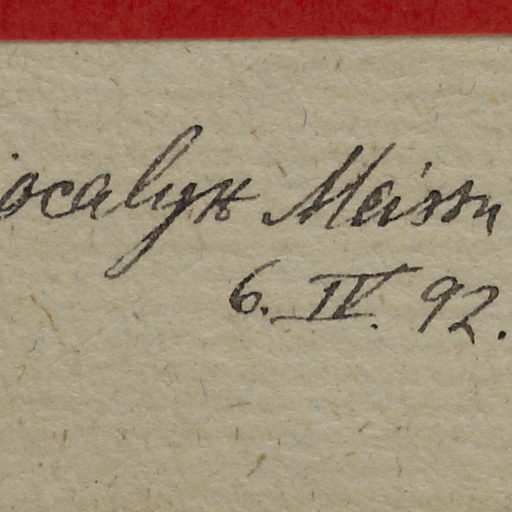 iocalyx Meissn
6. IV. 92.